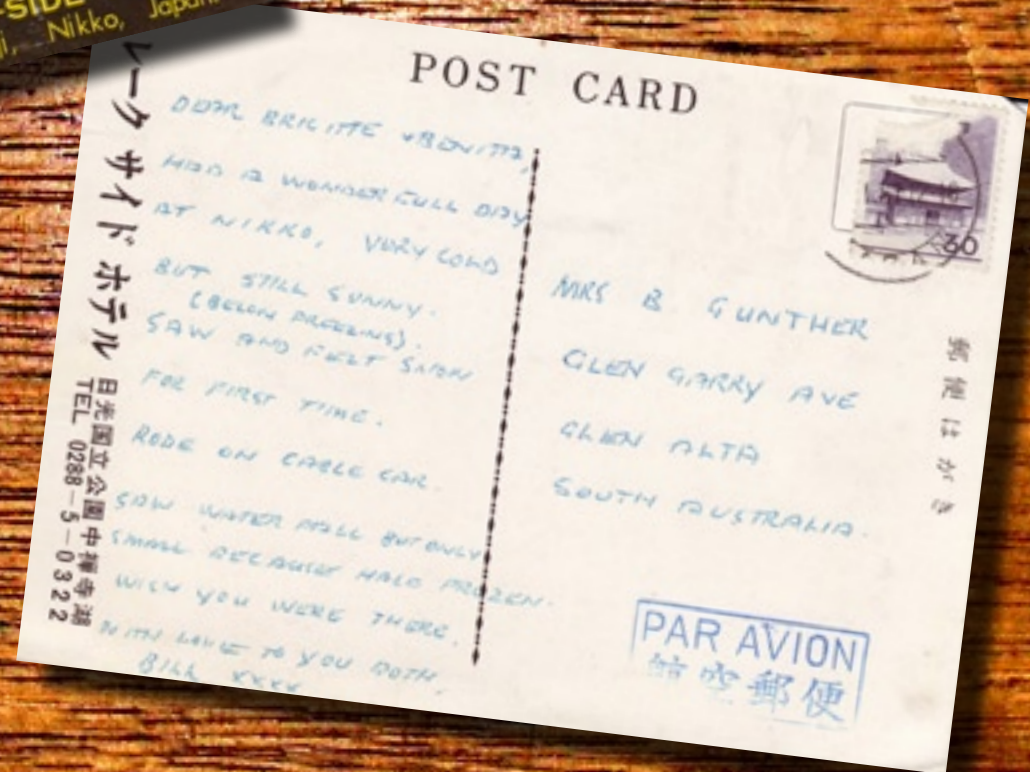 -SIDE
ji, Nikko, Japan.
POST CARD
レークサイドホテル
日光国立公園中禅寺湖
TEL 0288-5-0322
DEAR BRIGITTE + BENITA,
HAD A WONDERFULL DAY
AT NIKKO, VERY COLD
BUT STILL SUNNY.
(BELOW FREEZING).
SAW AND FELT SNOW
FOR FIRST TIME.
RODE ON CABLE CAR.
SAW WATER FALL BUT ONLY
SMALL BECAUSE HALF FROZEN.
WISH YOU WERE THERE.
WITH LOVE TO YOU BOTH.
BILL XXXX
30
MRS B GUNTHER
GLEN GARRY AVE
GLEN ALTA
SOUTH AUSTRALIA.
郵便はがき
PAR AVION
航空郵便